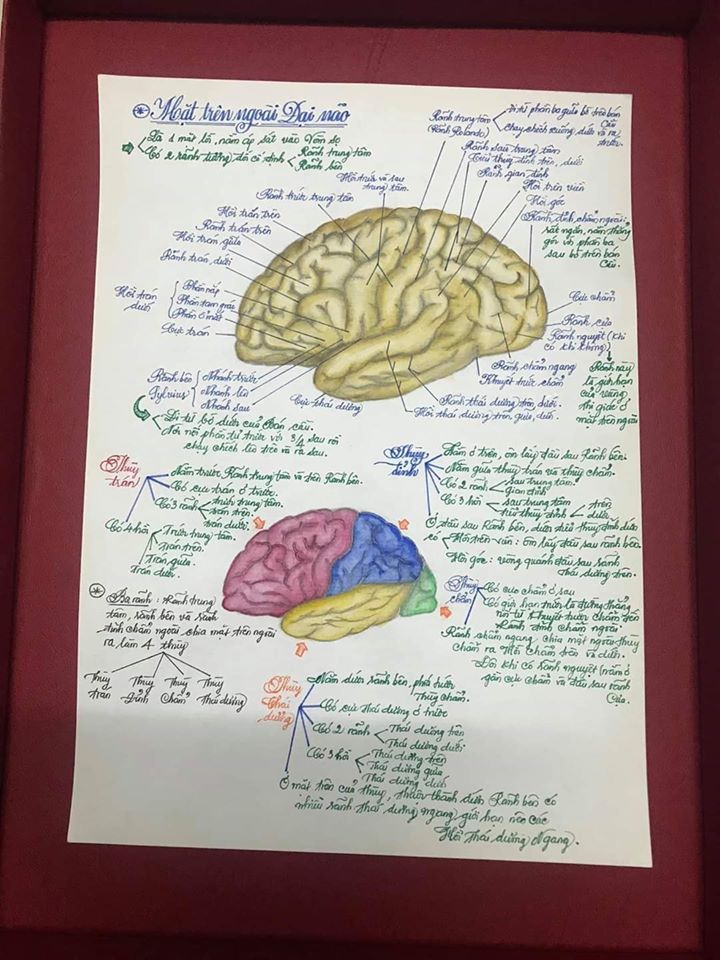 Mặt trên ngoài Đại não
Là 1 mặt lồi, nằm áp sát vào Vòm sọ
Có 2 rãnh tương đối cố định
Rãnh trung tâm
Rãnh bên
Rãnh trung tâm
(Rãnh Rolando)
Đi từ phần ba giữa bờ trên bán
Cầu
chạy chếch xuống dưới và ra
trước.
Rãnh sau trung tâm
Tiểu thùy đỉnh trên, dưới
Rãnh gian đỉnh
Hồi trên viền
Hồi góc
Rãnh đỉnh chẩm ngoài:
rất ngắn, nằm thẳng
góc với phần ba
sau bờ trên bán
Cầu.
Hồi trước và sau
trung tâm.
Rãnh trước trung tâm
Hồi trán trên
Rãnh trán trên
Hồi trán giữa
Rãnh trán dưới
Hồi trán
dưới
Phần nắp
Phần tam giác
Phần ổ mắt
Cực trán
Rãnh bên
Sylvius
Nhánh trước
Nhánh lên
Nhánh sau
Cực thái dương
Đi từ bờ dưới của Bán cầu.
Nơi nối phần tư trước với 3/4 sau rồi
chạy chếch lên trên và ra sau.
Cực chẩm
Rãnh của
Rãnh nguyệt (khi
có khi không)
Rãnh chẩm ngang
Khuyết trước chẩm
Rãnh thái dương trên, dưới.
Hồi thái dương trên, giữa, dưới.
Rãnh này
là giới hạn
của vùng
thị giác ở
mặt trên ngoài
Thùy
trán
Nằm trước Rãnh trung tâm và trên Rãnh bên.
Có cực trán ở trước.
Có 3 rãnh
trước trung tâm.
trán trên.
trán dưới.
Có 4 hồi
Trước trung tâm.
Trán trên.
Trán giữa.
Trán dưới.
Thùy
đỉnh
Nằm ở trên, ôm lấy đầu sau Rãnh bên.
Nằm giữa thùy trán và thùy chẩm.
Có 2 rãnh
sau trung tâm.
gian đỉnh
Có 3 hồi
sau trung tâm
tiểu thùy đỉnh
trên
dưới.
Ở đầu sau Rãnh bên, dưới tiểu thùy đỉnh dưới
có
Hồi trên viền: ôm lấy đầu sau rãnh bên.
Hồi góc: vòng quanh đầu sau rãnh
Thái dương trên.
Thùy
chẩm
Có cực chẩm ở sau
Có giới hạn trước là đường thẳng
nối từ Khuyết trước chẩm đến
Rãnh đỉnh chẩm ngoài.
Rãnh chẩm ngang chia mặt ngoài thùy
chẩm ra Hồi chẩm trên và dưới.
Đôi khi có Rãnh nguyệt (nằm ở
gần cực chẩm và đầu sau rãnh
Cựa.
Ba rãnh: Rãnh trung
tâm, rãnh bên và rãnh
đỉnh chẩm ngoài chia mặt trên ngoài
ra làm 4 thùy
Thùy trán
Thùy Đỉnh
Thùy Chẩm
Thùy Thái dương
Thùy
Thái
dương
Nằm dưới rãnh bên, phía trước
Thùy Chẩm.
Có cực thái dương ở trước
Có 2 rãnh
Thái dương trên
Thái dương dưới
Có 3 hồi
Thái dương trên
Thái dương giữa
Thái dương dưới
Ở mặt trên của thùy, thuộc thành dưới Rãnh bên có
nhiều rãnh thái dương ngang giới hạn nên các
Hồi Thái dương Ngang.